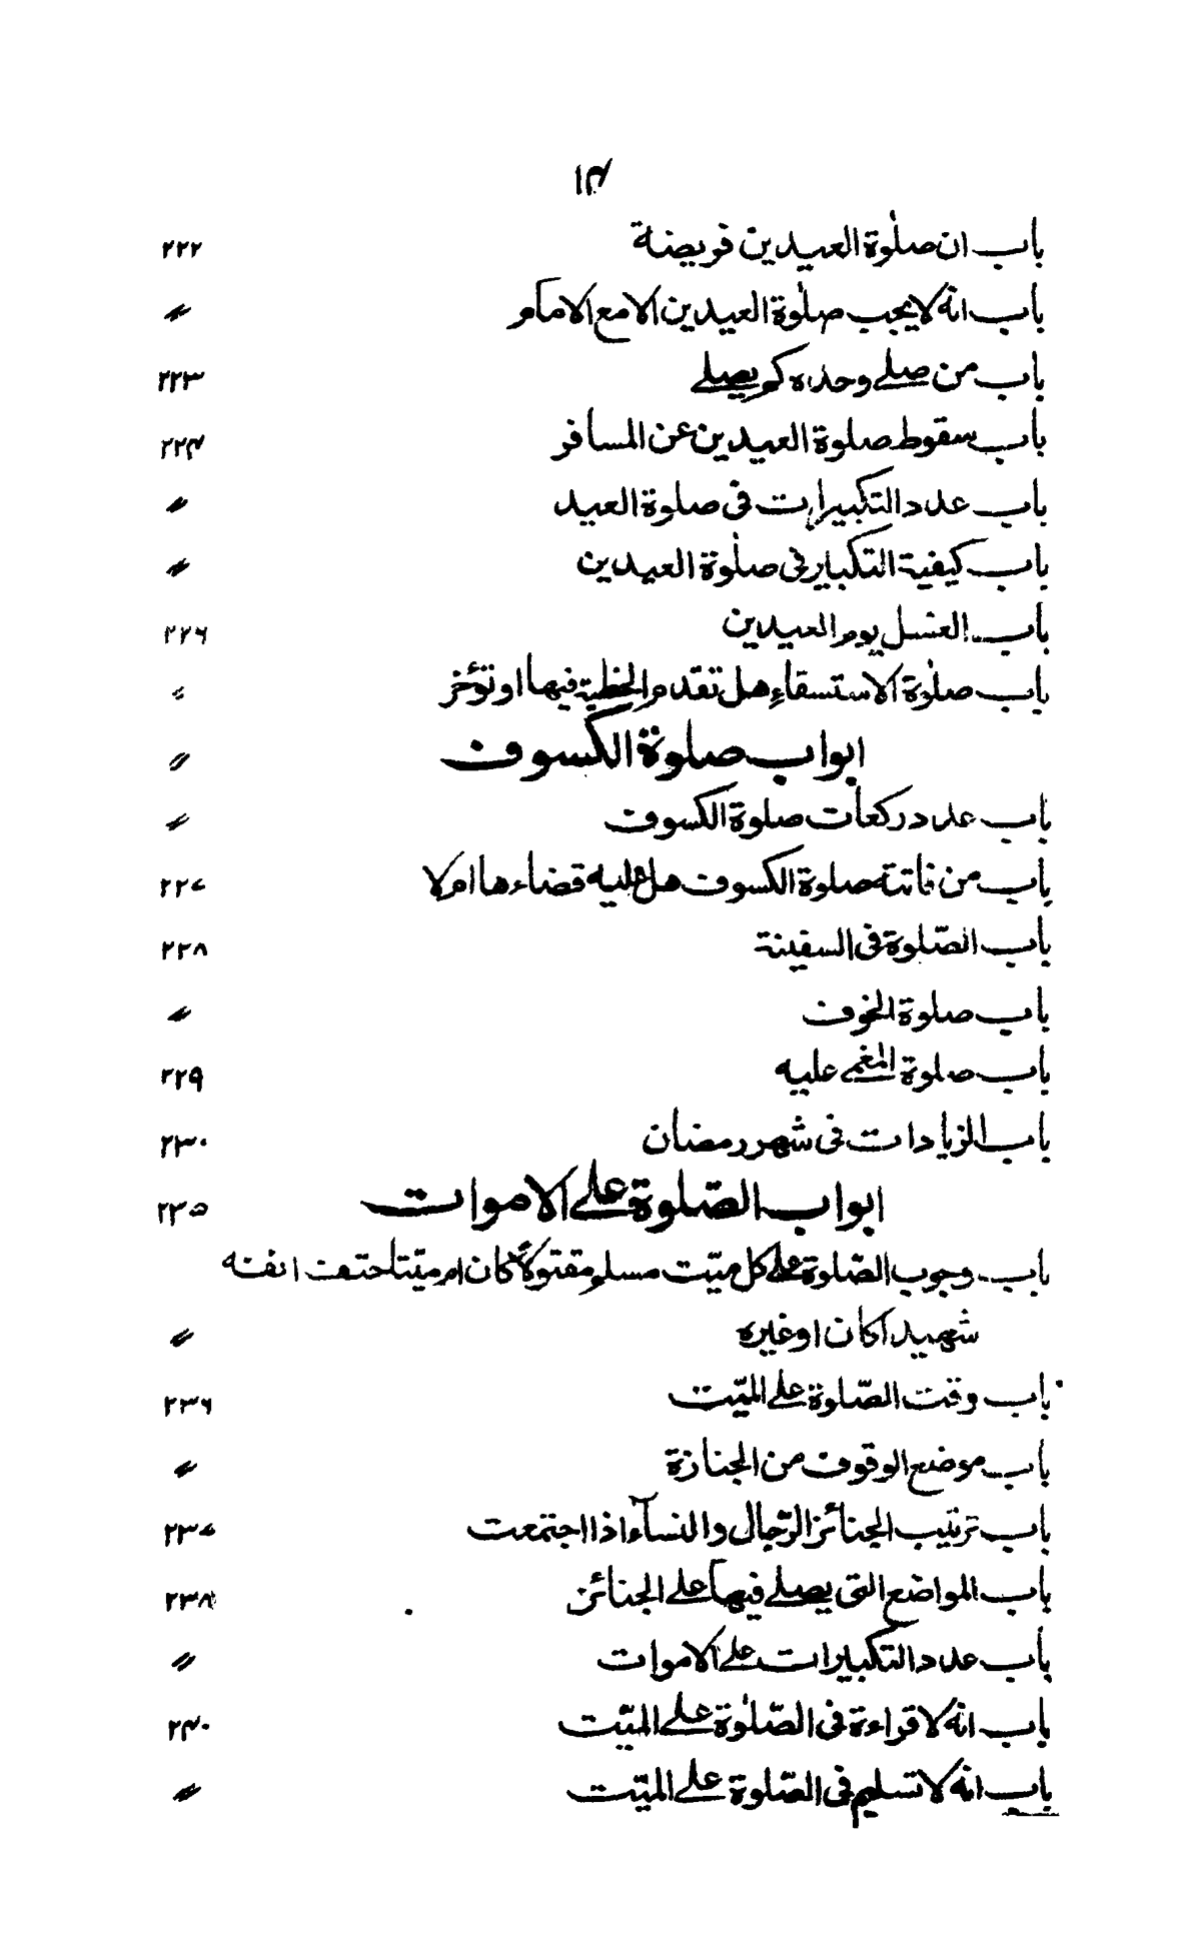 ۱۴
باب ان صلٰوة العيدين فريضة ۲۲۲
باب انه لا يجب صلٰوة العيدين الا مع الامام //
باب من صلے وحده كم يصلے ۲۲۳
باب سقوط صلوة العيدين عن المسافر ۲۲۴
باب عدد التكبيرات فى صلوة العيد //
باب كيفية التكبير فى صلٰوة العيدين //
باب الغسل يوم العيدين ۲۲۶
باب صلٰوة الاستسقاء هل تقدم الخطبة فيها او تؤخر //
ابواب صلوة الكسوف //
باب عدد ركعات صلوة الكسوف //
باب من فاتته صلوة الكسوف هل عليه قضاءها ام لا ۲۲۷
باب الصّلوة فى السفينة ۲۲۸
باب صلوة الخوف //
باب صلوة المغمے عليه ۲۲۹
باب الزيادات فى شهر رمضان ۲۳۰
ابواب الصّلوة علے الاموات ۲۳۵
باب وجوب الصّلوة علے كل ميّت مسلم مقتولاً كان ام ميّتا حتف انفه
شهيدا كان او غيره //
باب وقت الصّلوة علے الميّت ۲۳۶
باب موضع الوقوف من الجنازة //
باب ترتيب الجنائز الرّجال والنسآء اذا اجتمعت ۲۳۷
باب المواضع التى يصلے فيها علے الجنائز ۲۳۸
باب عدد التكبيرات علے الاموات //
باب انه لا قراءة فى الصّلٰوة علے الميّت ۲۴۰
باب انه لا تسليم فى الصّلوة علے الميّت //